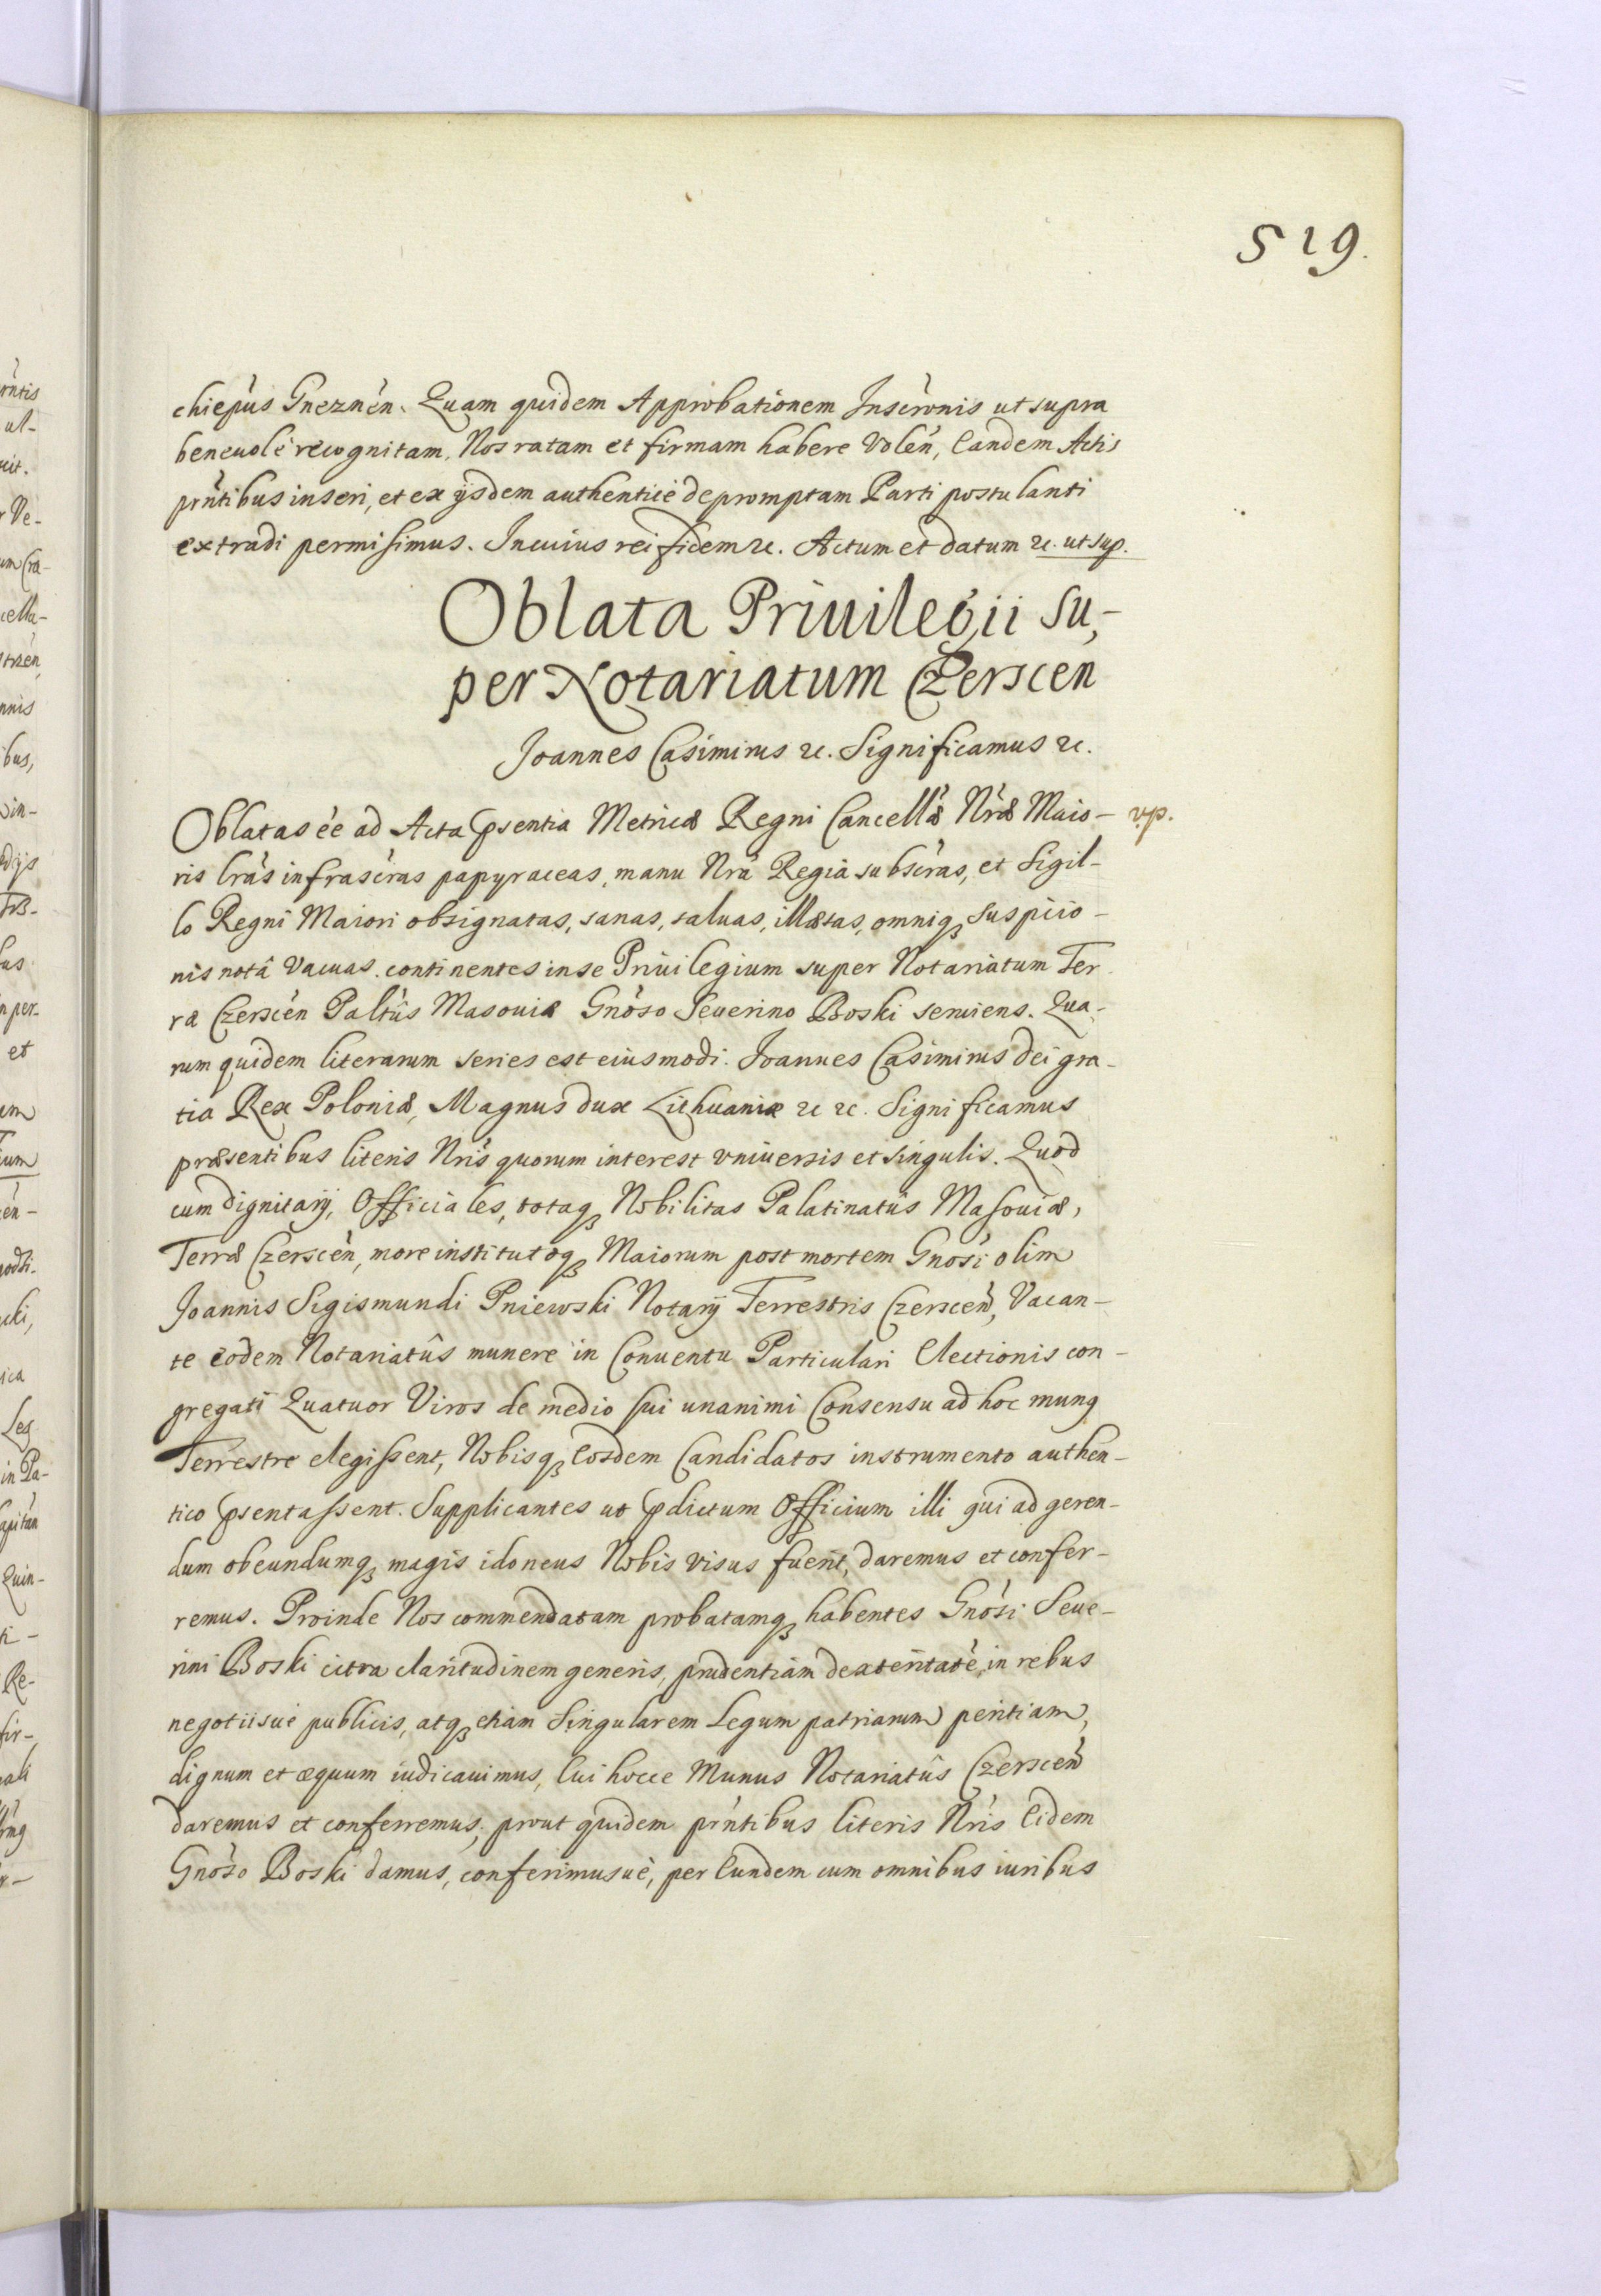 519.
chiep̀us Gneznen̂. Quam quidem Approbationem Inscr̀onis ut supra
beneuolè recognitam, Nos ratam et firmam habere volen̂, Eandem Actis
prǹtibus inseri, et ex ijsdem authenticè depromptam Parti postulanti
extradi permisimus. In cuius rei fidem &c. Actum et datum &c. ut sup.
Oblata Priuilegii su,-
per Notariatum Czerscen
Joannes Casimirus &c. Significamus &c.
Oblatas èe ad Acta p̃sentia Metricæ Regni Cancellæ̀ Nræ̀ Maio- v.p.
ris lr̀as infrascr̀as papyraceas, manu Nr̀a Regia subscr̀as, et Sigil-
lo Regni Maiori obsignatas, sanas, saluas, illæsas, omniq; suspicio-
nis notâ vacuas, continentes in se Priuilegium super Notariatum Ter
ræ Czerscèn Paltûs Masouiæ Gnòso Seuerino Boski seruiens. Qua-
rum quidem literarum series est eiusmodi. Joannes Casimirus dei gra-
tia Rex Poloniæ, Magnus dux Lithuaniæ &c &c. Significamus
præsentibus literis Nrìs quorum interest vniuersis et singulis. Quod
cum dignitarij, Officiales, totaq; Nobilitas Palatinatûs Masouiæ,
Terræ Czerscèn, more institutoq; Maiorum post mortem Gnòsi olim
Joannis Sigismundi Pniewski Notarij Terrestris Czerscèn, Vacan-
te eodem Notariatûs munere in Conuentu Particulari Electionis con-
gregati Quatuor Viros de medio sui unanimi Consensu ad hoc munq
Terrestre elegissent, Nobisq; Eosdem Candidatos instrumento authen-
tico p̃sentassent. Supplicantes ut p̃dictum Officium illi qui ad geren-
dum obeundumq; magis idoneus Nobis visus fuerit, daremus et confer-
remus. Proinde Nos commendatam probatamq; habentes Gnòsi Seue-
rini Boski citra claritudinem generis, prudentiam dexteritatè in rebus
negotiisuè publicis, atq; etiam Singularem Legum patriarum peritiam,
dignum et æquum iudicauimus, Cui hocce Munus Notariatûs Czerscèn
daremus et conferremus, prout quidem prǹtibus literis Nrìs Eidem
Gnòso Boski damus, conferimusuè, per Eundem cum omnibus iuribus